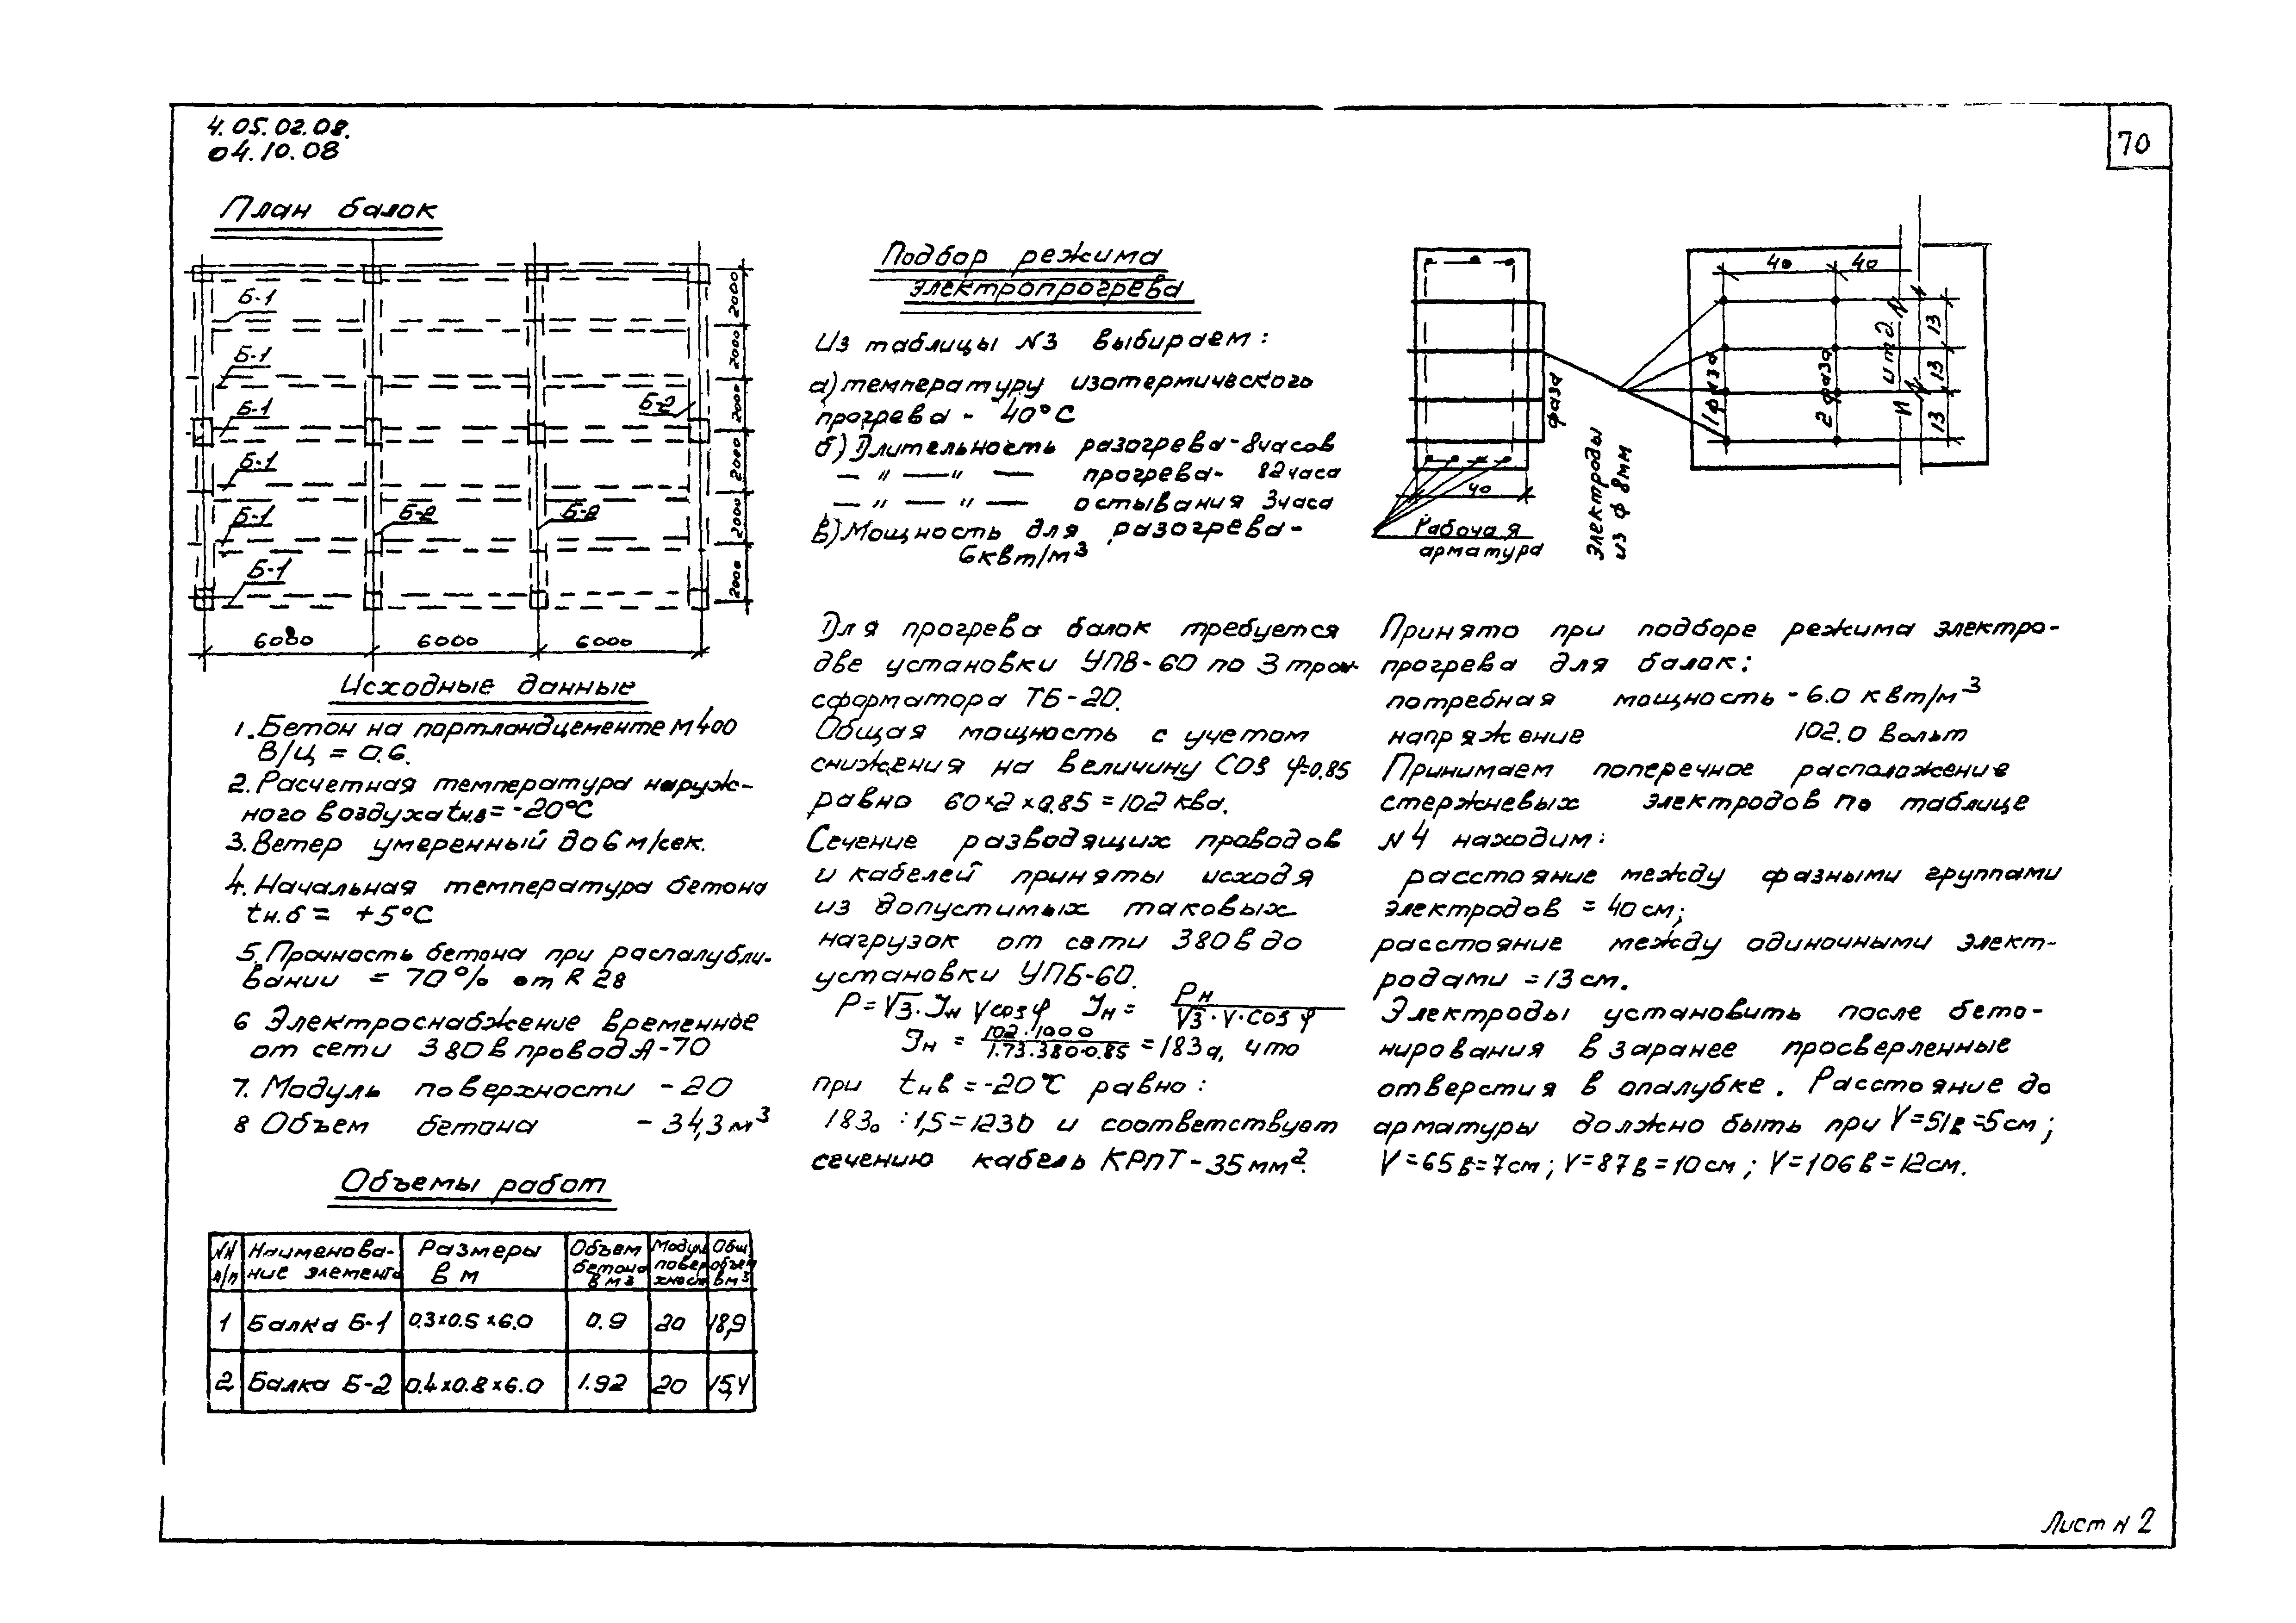 4.05.02.08.
04.10.08
70
План балок
Б-1
Б-1
Б-1
Б-2
Б-1
Б-1
Б-2
Б-2
Б-1
2000
2000
2000
2000
2000
2000
6000
6000
6000
Исходные данные
1. Бетон на портландцементе М400
В/Ц = 0.6.
2. Расчетная температура наруж-
ного воздуха tн.в = -20°С
3. Ветер умеренный до 6 м/сек.
4. Начальная температура бетона
tн.б = +5°С
5. Прочность бетона при распалубли-
вании = 70% от R 28
6 Электроснабжение временное
от сети 380 в провод А-70
7. Модуль поверхности - 20
8 Объем бетона - 34,3 м³
Объемы работ
NN п/п | Наименова-ние элемента | Размеры в м | Объем бетона в м3 | Модуль поверхности | Общ. объем в м3
1 | Балка Б-1 | 0.3×0.5×6.0 | 0.9 | 20 | 18,9
2 | Балка Б-2 | 0.4×0.8×6.0 | 1.92 | 20 | 15,4
Подбор режима
электропрогрева
Из таблицы N3 выбираем:
а) температуру изотермического
прогрева - 40°С
б) Длительность разогрева - 8 часов
— " — " — прогрева - 82 часа
— " — " — остывания 3 часа
в) Мощность для разогрева -
6 квт/м³
Для прогрева балок требуется
две установки УПВ-60 по 3 тран-
сформатора ТБ-20.
Общая мощность с учетом
снижения на величину COS φ=0.85
равно 60×2×0.85=102 ква.
Сечение разводящих проводов
и кабелей приняты исходя
из допустимых таковых
нагрузок от сети 380 в до
установки УПБ-60.
P=√3·Jн V cos φ Jн = Pн / √3·V·cos φ
Jн = 102·1000 / 1.73·380·0.85 = 183а, что
при tнв = -20°С равно:
183а : 1,5 = 123а и соответствует
сечению кабель КРПТ-35мм².
40
фаза
Рабочая
арматура
Электроды
из ф 8мм
40
40
1 фаза
2 фаза
и т д.
13
13
13
Принято при подборе режима электро-
прогрева для балок:
потребная мощность - 6.0 квт/м³
напряжение 102.0 вольт
Принимаем поперечное расположение
стержневых электродов по таблице
N4 находим:
расстояние между фазными группами
электродов = 40 см;
расстояние между одиночными элект-
родами = 13 см.
Электроды установить после бето-
нирования в заранее просверленные
отверстия в опалубке. Расстояние до
арматуры должно быть при V=51в=5см;
V=65в=7см; V=87в=10см; V=106в=12см.
Лист N 2